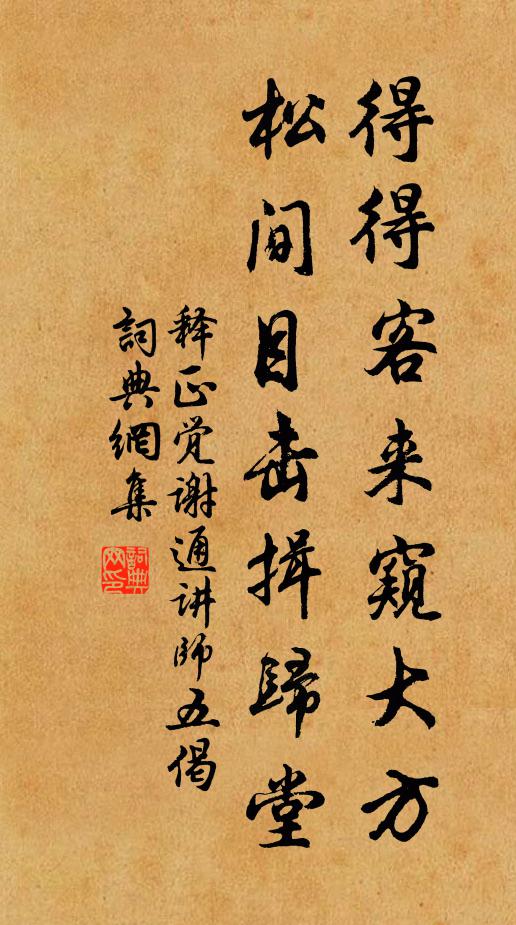 得得客来窥大方
松间目击揖歸堂
释正觉謝通讲师五偈
詞典網集
詞典网印